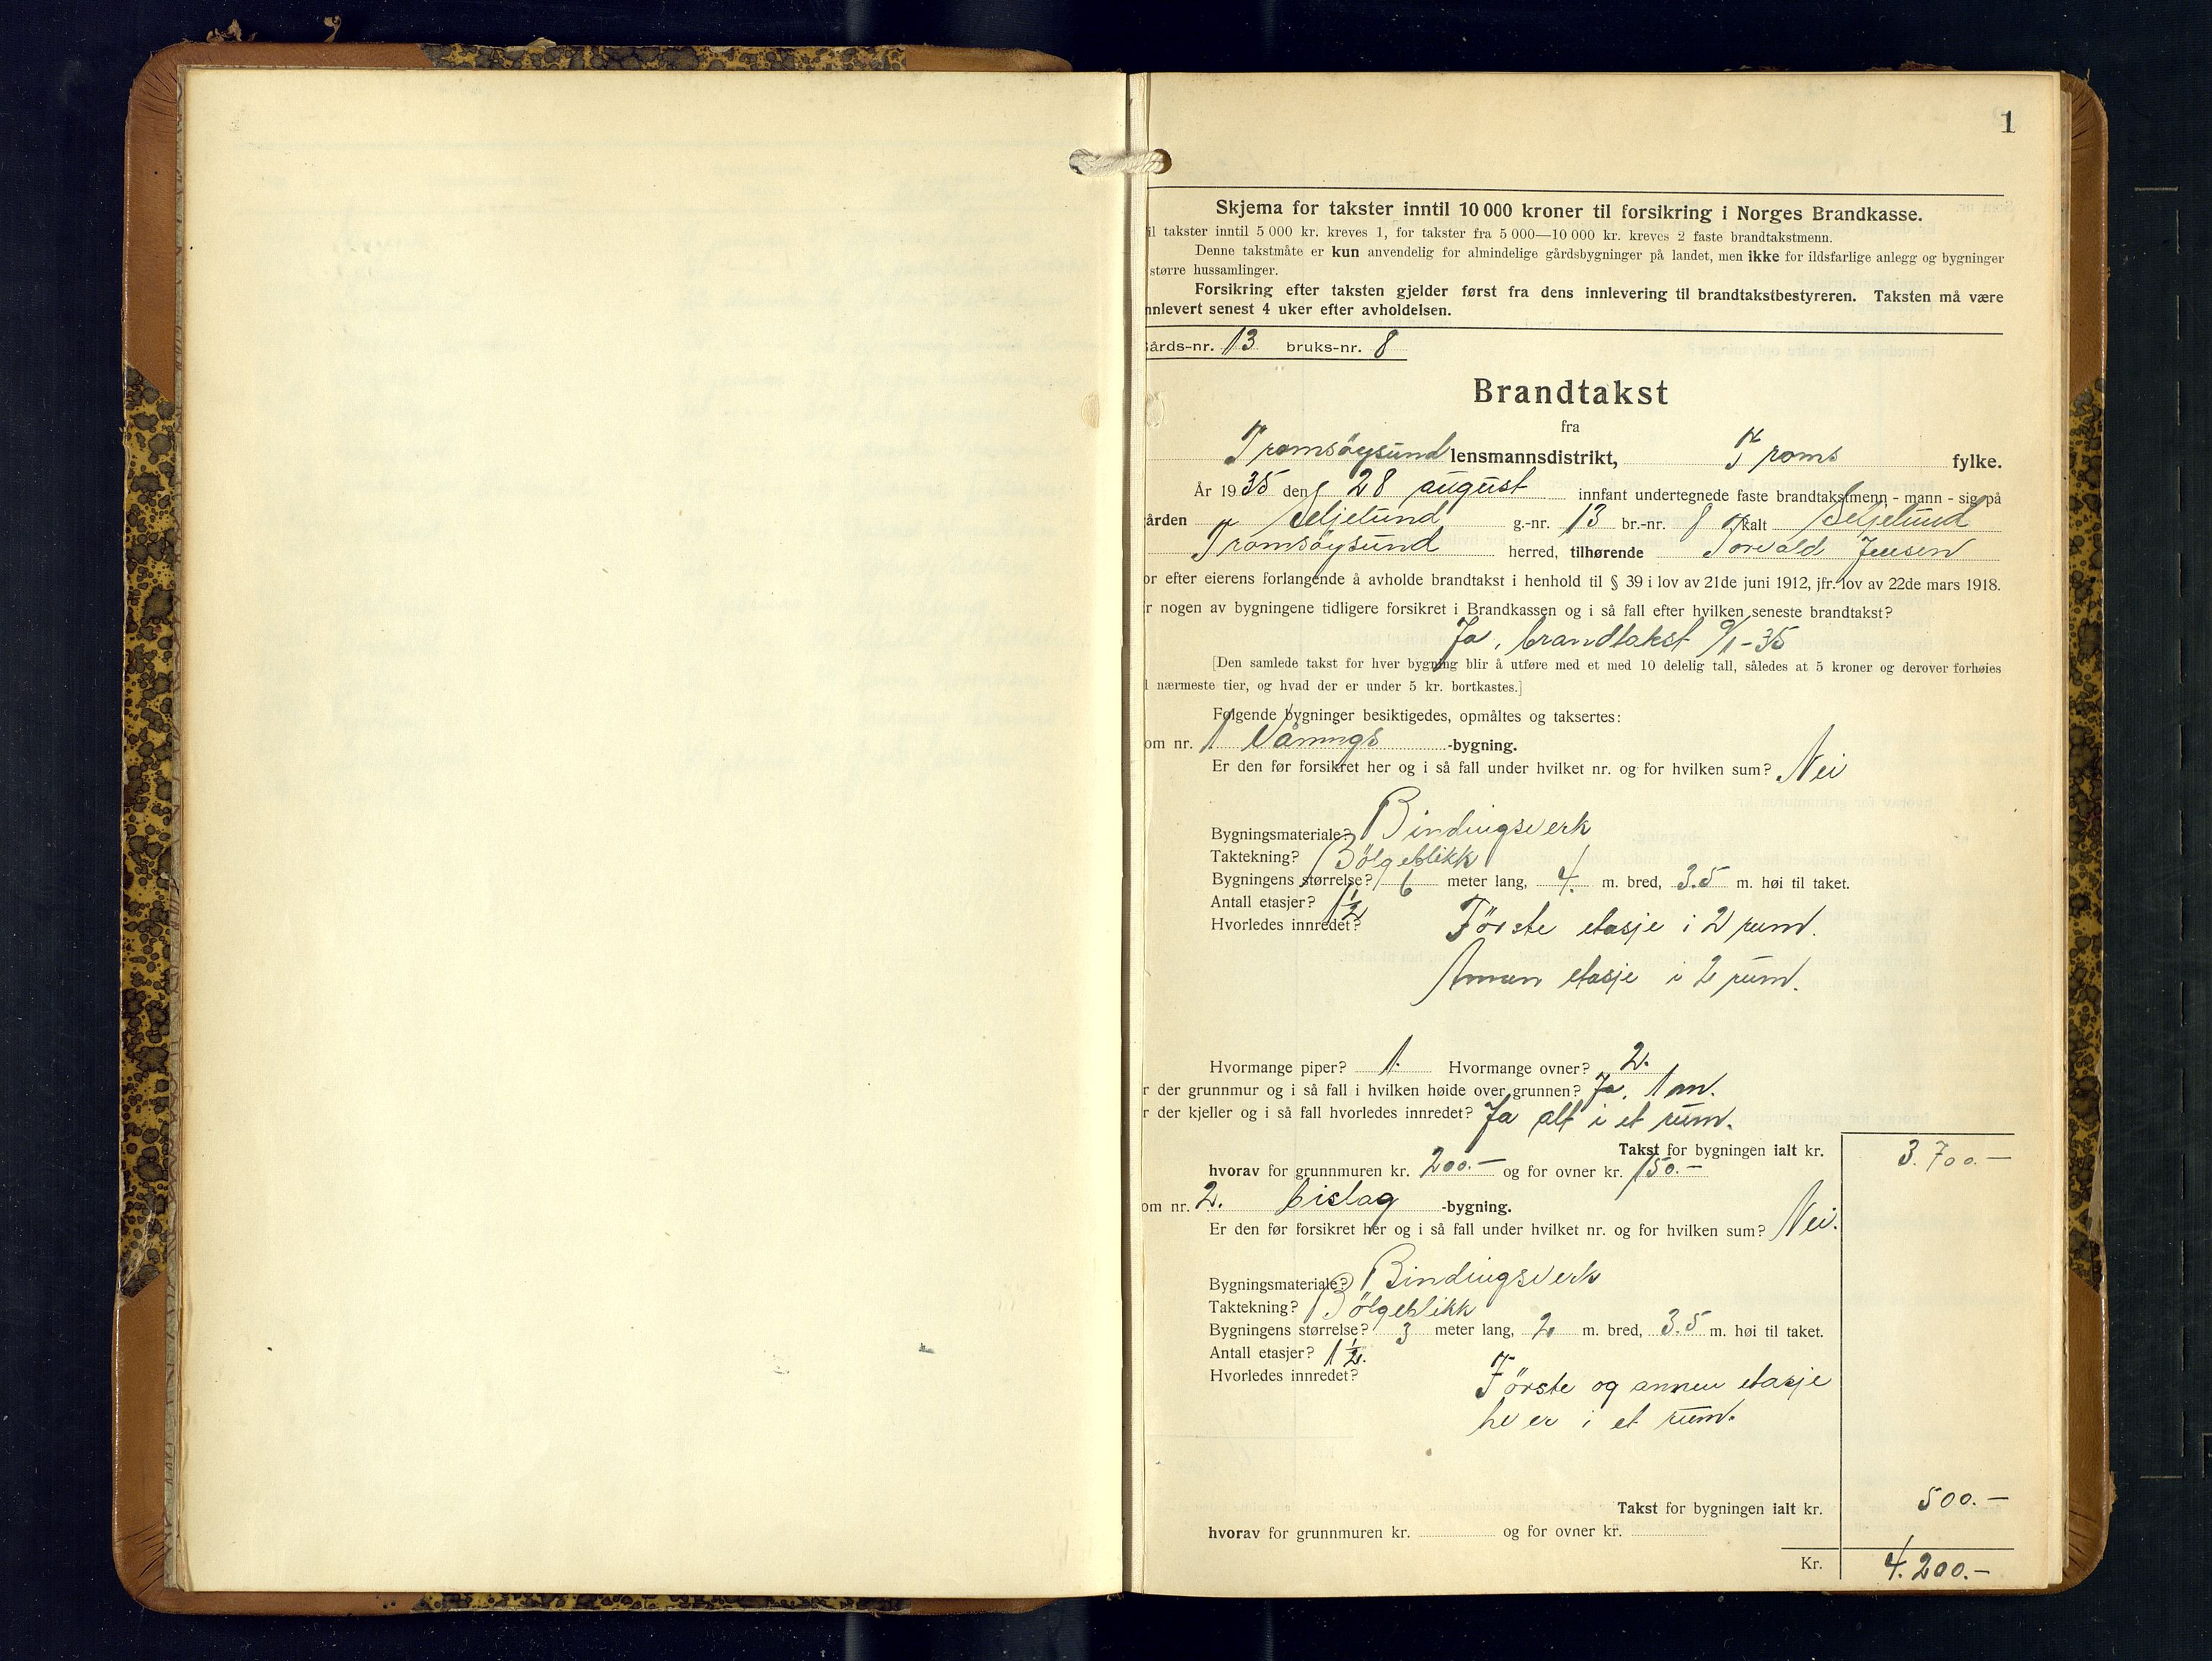 1
Skjema for takster inntil 10 000 kroner til forsikring i Norges Brandkasse.
il takster inntil 5 000 kr. kreves 1, for takster fra 5 000—10 000 kr. kreves 2 faste brandtakstmenn.
Denne takstmåte er kun anvendelig for almindelige gårdsbygninger på landet, men ikke for ildsfarlige anlegg og bygninger
større hussamlinger.
Forsikring efter taksten gjelder først fra dens innlevering til brandtakstbestyreren. Taksten må være
nnlevert senest 4 uker efter avholdelsen.
årds-nr. 13 bruks-nr. 8
Brandtakst
fra
Tromsöysund lensmannsdistrikt, Troms fylke.
År 1935 den 28 august innfant undertegnede faste brandtakstmenn - mann - sig på
ården Seljelund g.-nr. 13 br.-nr. 8 kalt Seljelund
Tromsöysund herred, tilhørende Torvald Jensen
or efter eierens forlangende å avholde brandtakst i henhold til § 39 i lov av 21de juni 1912, jfr. lov av 22de mars 1918.
r nogen av bygningene tidligere forsikret i Brandkassen og i så fall efter hvilken seneste brandtakst?
Ja, brandtakst 9/1-35
[Den samlede takst for hver bygning blir å utføre med et med 10 delelig tall, således at 5 kroner og derover forhøies
l nærmeste tier, og hvad der er under 5 kr. bortkastes.]
Følgende bygninger besiktigedes, opmåltes og taksertes:
om nr. 1 Vånings -bygning.
Er den før forsikret her og i så fall under hvilket nr. og for hvilken sum? Nei
Bygningsmateriale? Bindingsverk
Taktekning? Bölgeblikk
Bygningens størrelse? 6 meter lang, 4. m. bred, 3.5 m. høi til taket.
Antall etasjer? 1 1/2
Hvorledes innredet? Förste etasje i 2 rum.
Annen etasje i 2 rum.
Hvormange piper? 1. Hvormange ovner? 2.
r der grunnmur og i så fall i hvilken høide over grunnen? Ja, 1 m.
r der kjeller og i så fall hvorledes innredet? Ja alt i et rum.
Takst for bygningen ialt kr. 3.700.-
hvorav for grunnmuren kr. 200.- og for ovner kr. 150.-
om nr. 2. bislag -bygning.
Er den før forsikret her og i så fall under hvilket nr. og for hvilken sum? Nei.
Bygningsmateriale? Bindingsverk
Taktekning? Bölgeblikk
Bygningens størrelse? 3 meter lang, 2. m. bred, 3.5 m. høi til taket.
Antall etasjer? 1 1/2.
Hvorledes innredet? Förste og annen etasje
hver i et rum.
Takst for bygningen ialt kr. 500.-
hvorav for grunnmuren kr. og for ovner kr.
Kr. 4.200.-